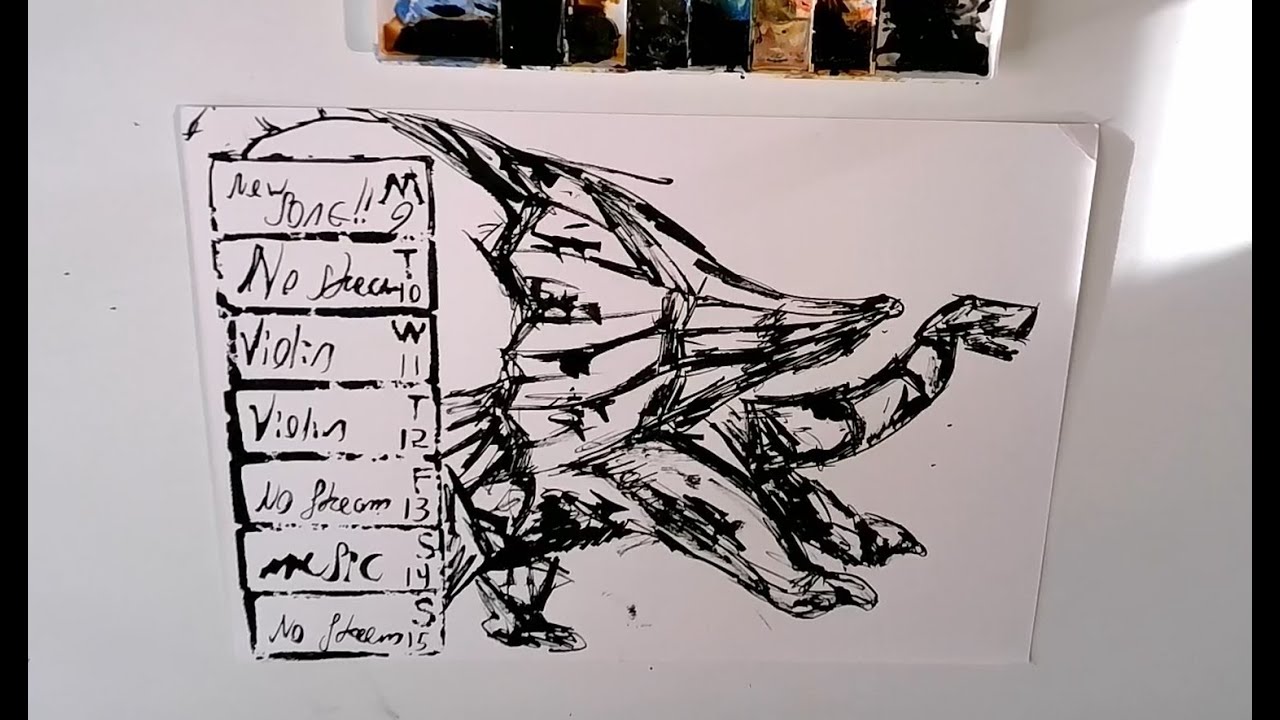 New M
SONG!! 9
T
No Stream 10
Violin W
11
Violin T
12
F
No Stream 13
S
music 14
S
No Stream 15